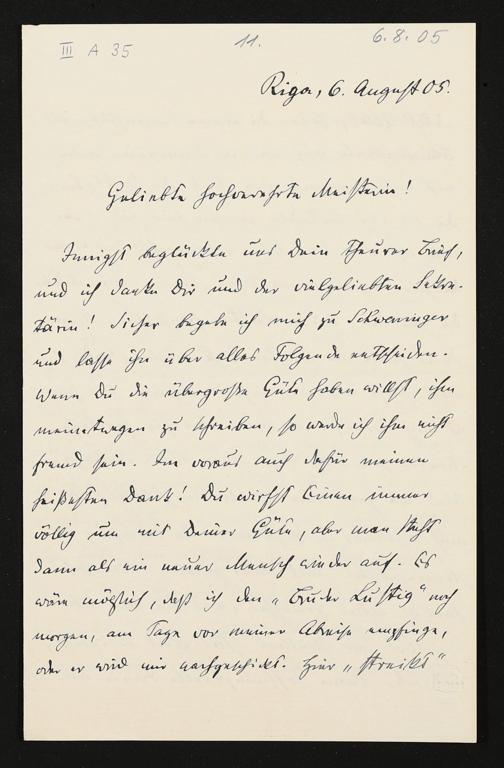 III A 35
11.
6.8.05
Riga, 6. August 05.
Geliebte hochverehrte Meisterin!
Innigst beglückte uns Dein theurer Brief,
und ich danke Dir und der vielgeliebten Sekre-
tärin! Sicher begebe ich mich zu Schweninger
und lasse ihn über alles Folgende entscheiden.
Wenn Du die übergroße Güte haben willst, ihm
meinetwegen zu schreiben, so werde ich ihm nicht
fremd sein. Im voraus auch dafür meinen
heißesten Dank! Du wirfst Einen immer
völlig um mit Deiner Güte, aber man steht
dann als ein neuer Mensch wieder auf. Es
wäre möglich, daß ich den „Bruder Lustig" noch
morgen, am Tage vor meiner Abreise empfinge,
oder er wird mir nachgeschickt. Hier „streikt"